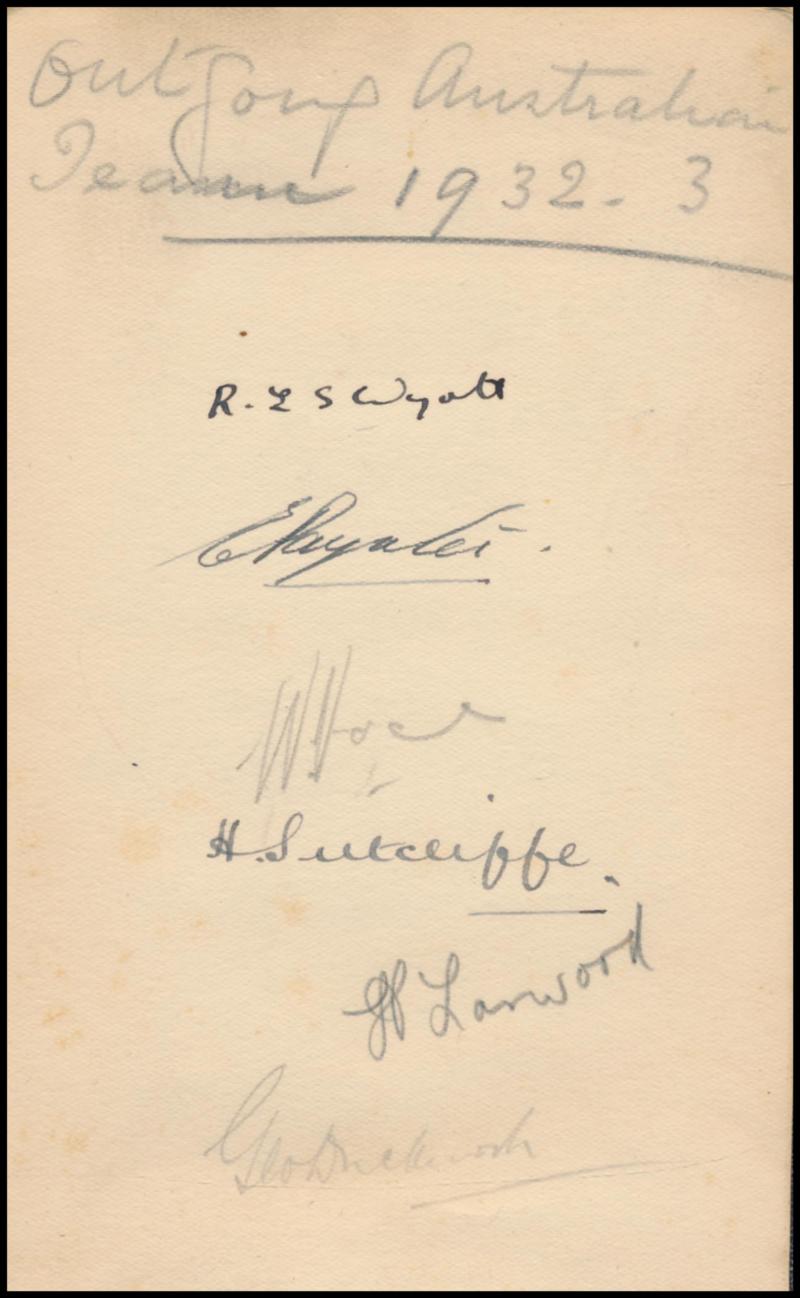 Outgoing Australian
Team 1932-3
R. E S Wyatt
E Paynter.
W Voce
H. Sutcliffe.
H Larwood
Geo Duckworth